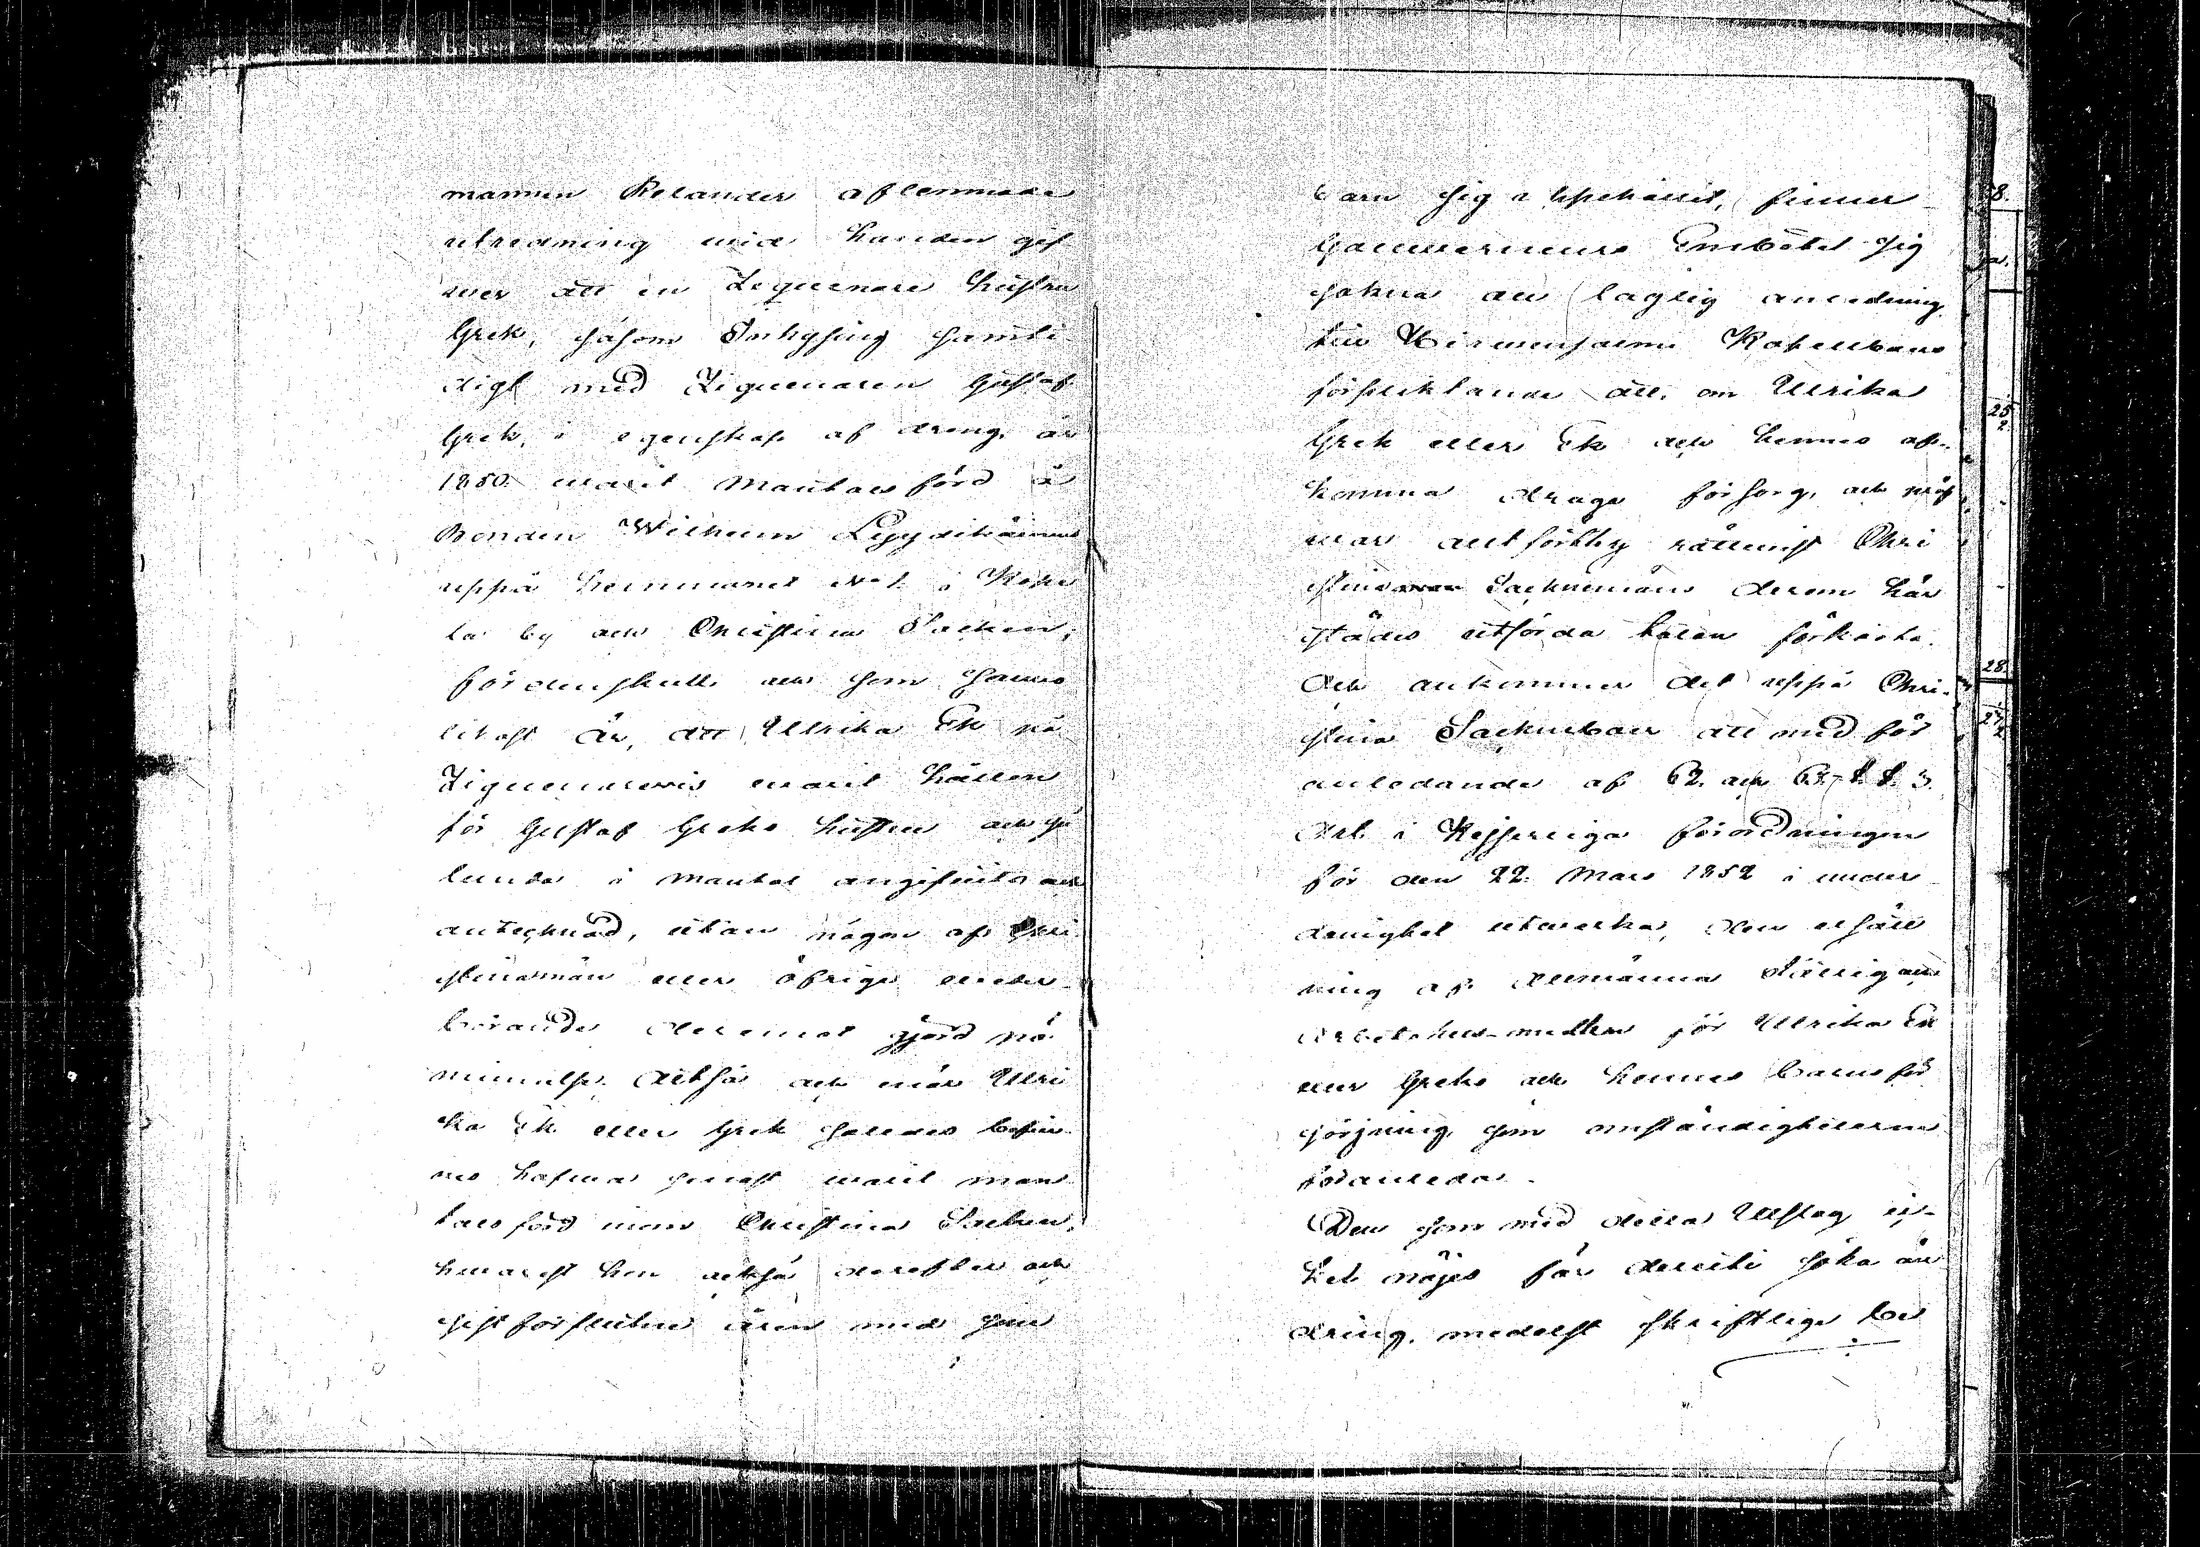 mannen Relander aflemnade
utredning vid handen gif
ver att en Ziguenare hustru
Grek, såsom Inhysing samti
digt med Ziguenaren Gustaf
Grek, i egenskap af dreng, år
1850. varit mantals förd å
Bonden Wilhelm
uppå hemmanet No 1. i
la by och Christina Socken,
fördenskull, och som sanno
likast är, att Ullrika Ek på
Ziguenarevis varit hållen
för Gustaf Greks hustru och så
lunda i mantal angifvits och
antecknad, utan någon af Chri
stinamän eller öfrige veder
börande deremot gjord på
minnelse. Altså och när Ullri
ka Ek eller Grek således befin
nes hafva senast varit man
tals förd inom Christina Socken,
hvarest hon också derefter och
sist förflutne åren med sine
barn sig uppehållit, finner
Gouverneurs Embetet sig
sakna all laglig anledning
till
förpliktande att, om Ullrika
Grek eller Ek och hennes af-
komma draga försorg, och pröf
var altförthy rättvist Chri
stina Socknemäns derom här
städes utförda talan förkasta.
Och ankommer det uppå Chri-
stina Sockneboer att med för
anledande af 62. och 63. §. §. 3.
Art. i Kejserliga förordningen
för den 22. Mars 1852 i under
danighet utverka, den ersätt
ning af Allmänna
Arbetshus-medlen för Ullrika Ek
eller Greks och hennes barns för
sörjning, som omständigheterne
föranleda.
Den som med detta Utslag ic-
ket nöjes får deruti söka än
dring, medelst skriftlige be
28.
25
2
28
27
2